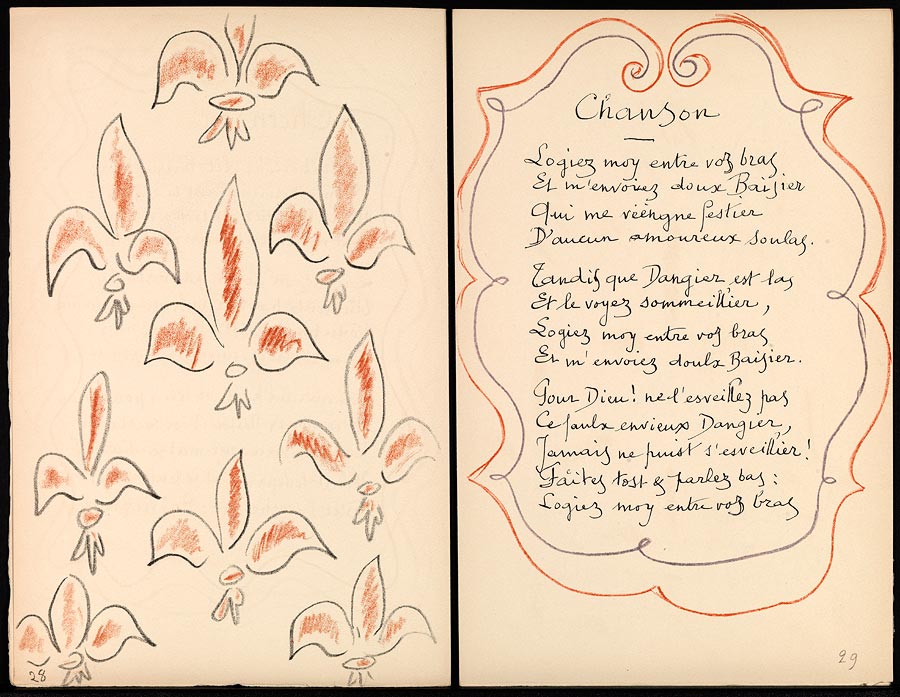 Chanson
Logiez moy entre voz bras
Et m'envoiez doux Baisier
Qui me viengne festier
D'aucun amoureux soulas.
Tandis que Dangier est las
Et le voyez sommeillier,
Logiez moy entre voz bras
Et m'envoiez doulx Baisier.
Pour Dieu! ne l'esveillez pas
Ce faulx envieux Dangier,
Jamais ne puist s'esveillier!
Faites tost & parlez bas:
Logiez moy entre voz bras
28
29